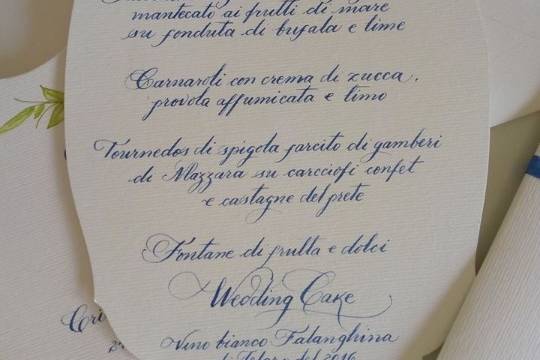 mantecato ai frutti di mare
su fonduta di bufala e lime
Carnaroli con crema di zucca,
provola affumicata e timo
Tournedos di spigola farcito di gamberi
di Mazzara su carciofi confet
e castagne del prete
Fontane di frutta e dolci
Wedding Cake
Vino bianco Falanghina